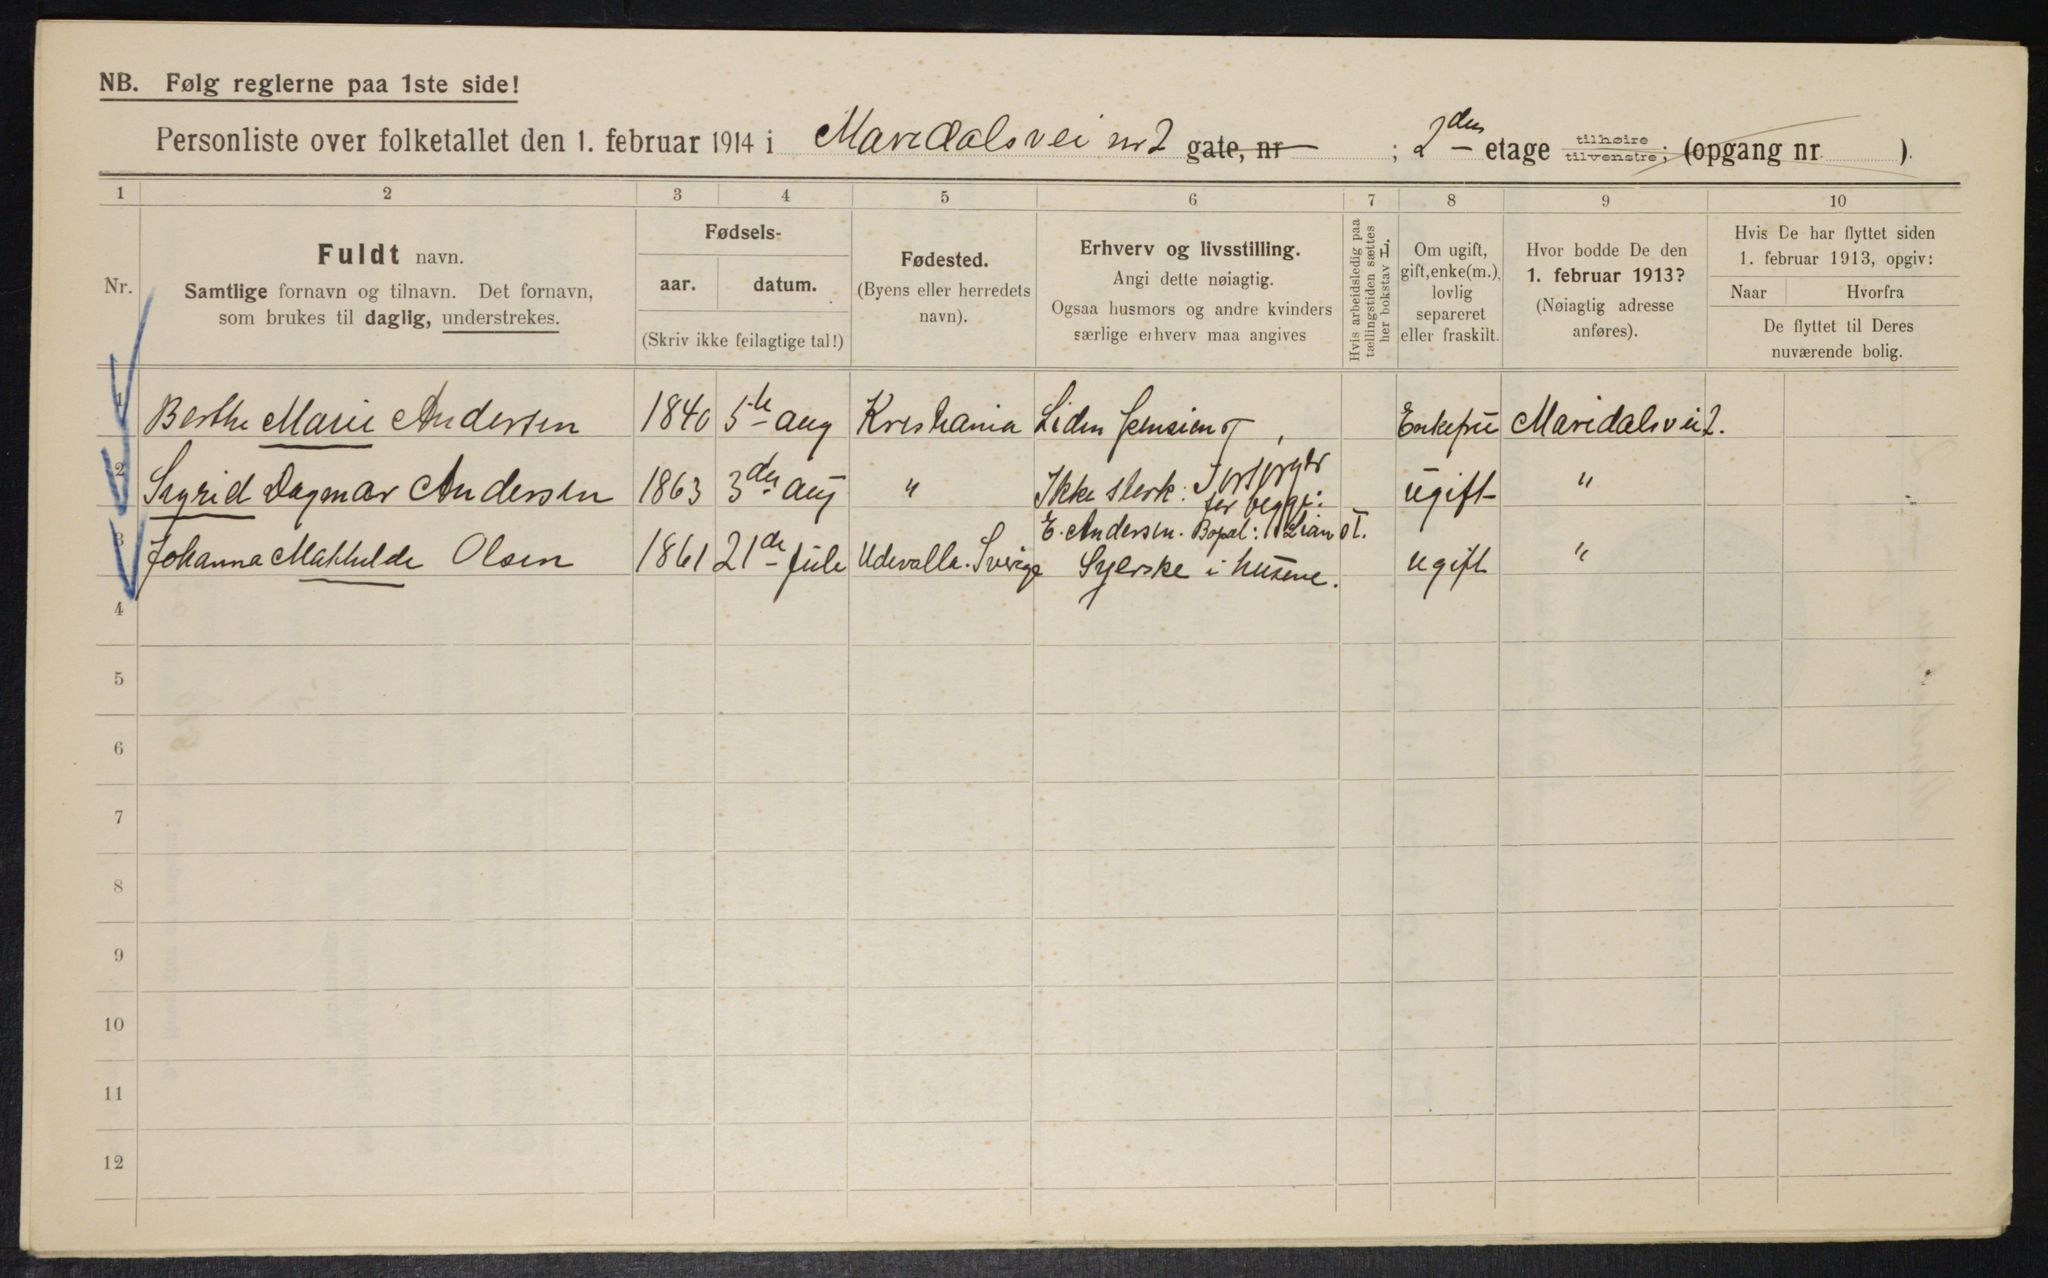 NB. Følg reglerne paa 1ste side!
Personliste over folketallet den 1. februar 1914 i Maridalsvei nr 2 gate, nr ; 2den etage tilhøire tilvenstre; (opgang nr ).
1 2 3 4 5 6 7 8 9 10
Nr.
Fuldt navn.
Samtlige fornavn og tilnavn. Det fornavn,
som brukes til daglig, understrekes.
Fødsels-
aar. datum.
(Skriv ikke feilagtige tal!)
Fødested.
(Byens eller herredets
navn).
Erhverv og livsstilling.
Angi dette nøiagtig.
Ogsaa husmors og andre kvinders
særlige erhverv maa angives
Hvis arbeidsledig paa
tællingstiden sættes
her bokstav L.
Om ugift,
gift, enke(m.),
lovlig
separeret
eller fraskilt.
Hvor bodde De den
1. februar 1913?
(Nøiagtig adresse
anføres).
Hvis De har flyttet siden
1. februar 1913, opgiv:
Naar Hvorfra
De flyttet til Deres
nuværende bolig.
1 Berthe Marie Andersen 1840 5te aug Kristiania Liden pension Enkefru Maridalsvei 2.
2 Sigrid Dagmar Andersen 1863 3den aug " Ikke sterk: Forsørger ugift "
for begge:
E. Andersen. Bopæl:
3 Johanna Mathilde Olsen 1861 21de Juli Udevalla. Sverige Syerske i husene. ugift "
4
5
6
7
8
9
10
11
12